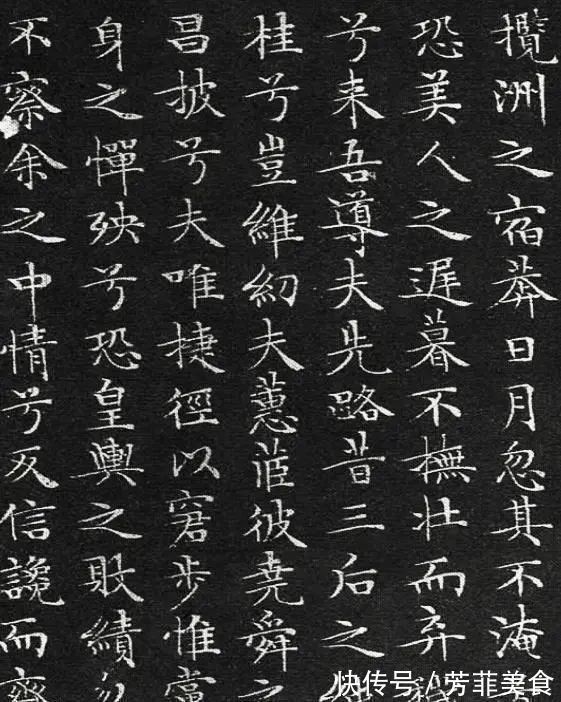 攬洲之宿莽日月忽其不淹
恐美人之遲暮不撫壯而弃
兮来吾導夫先路昔三后之
桂兮豈維紉夫蕙茝彼堯舜之
昌披兮夫唯捷徑以窘步惟
身之憚殃兮恐皇輿之敗績
不察余之中情兮反信讒而齊
快传号/芳菲美食